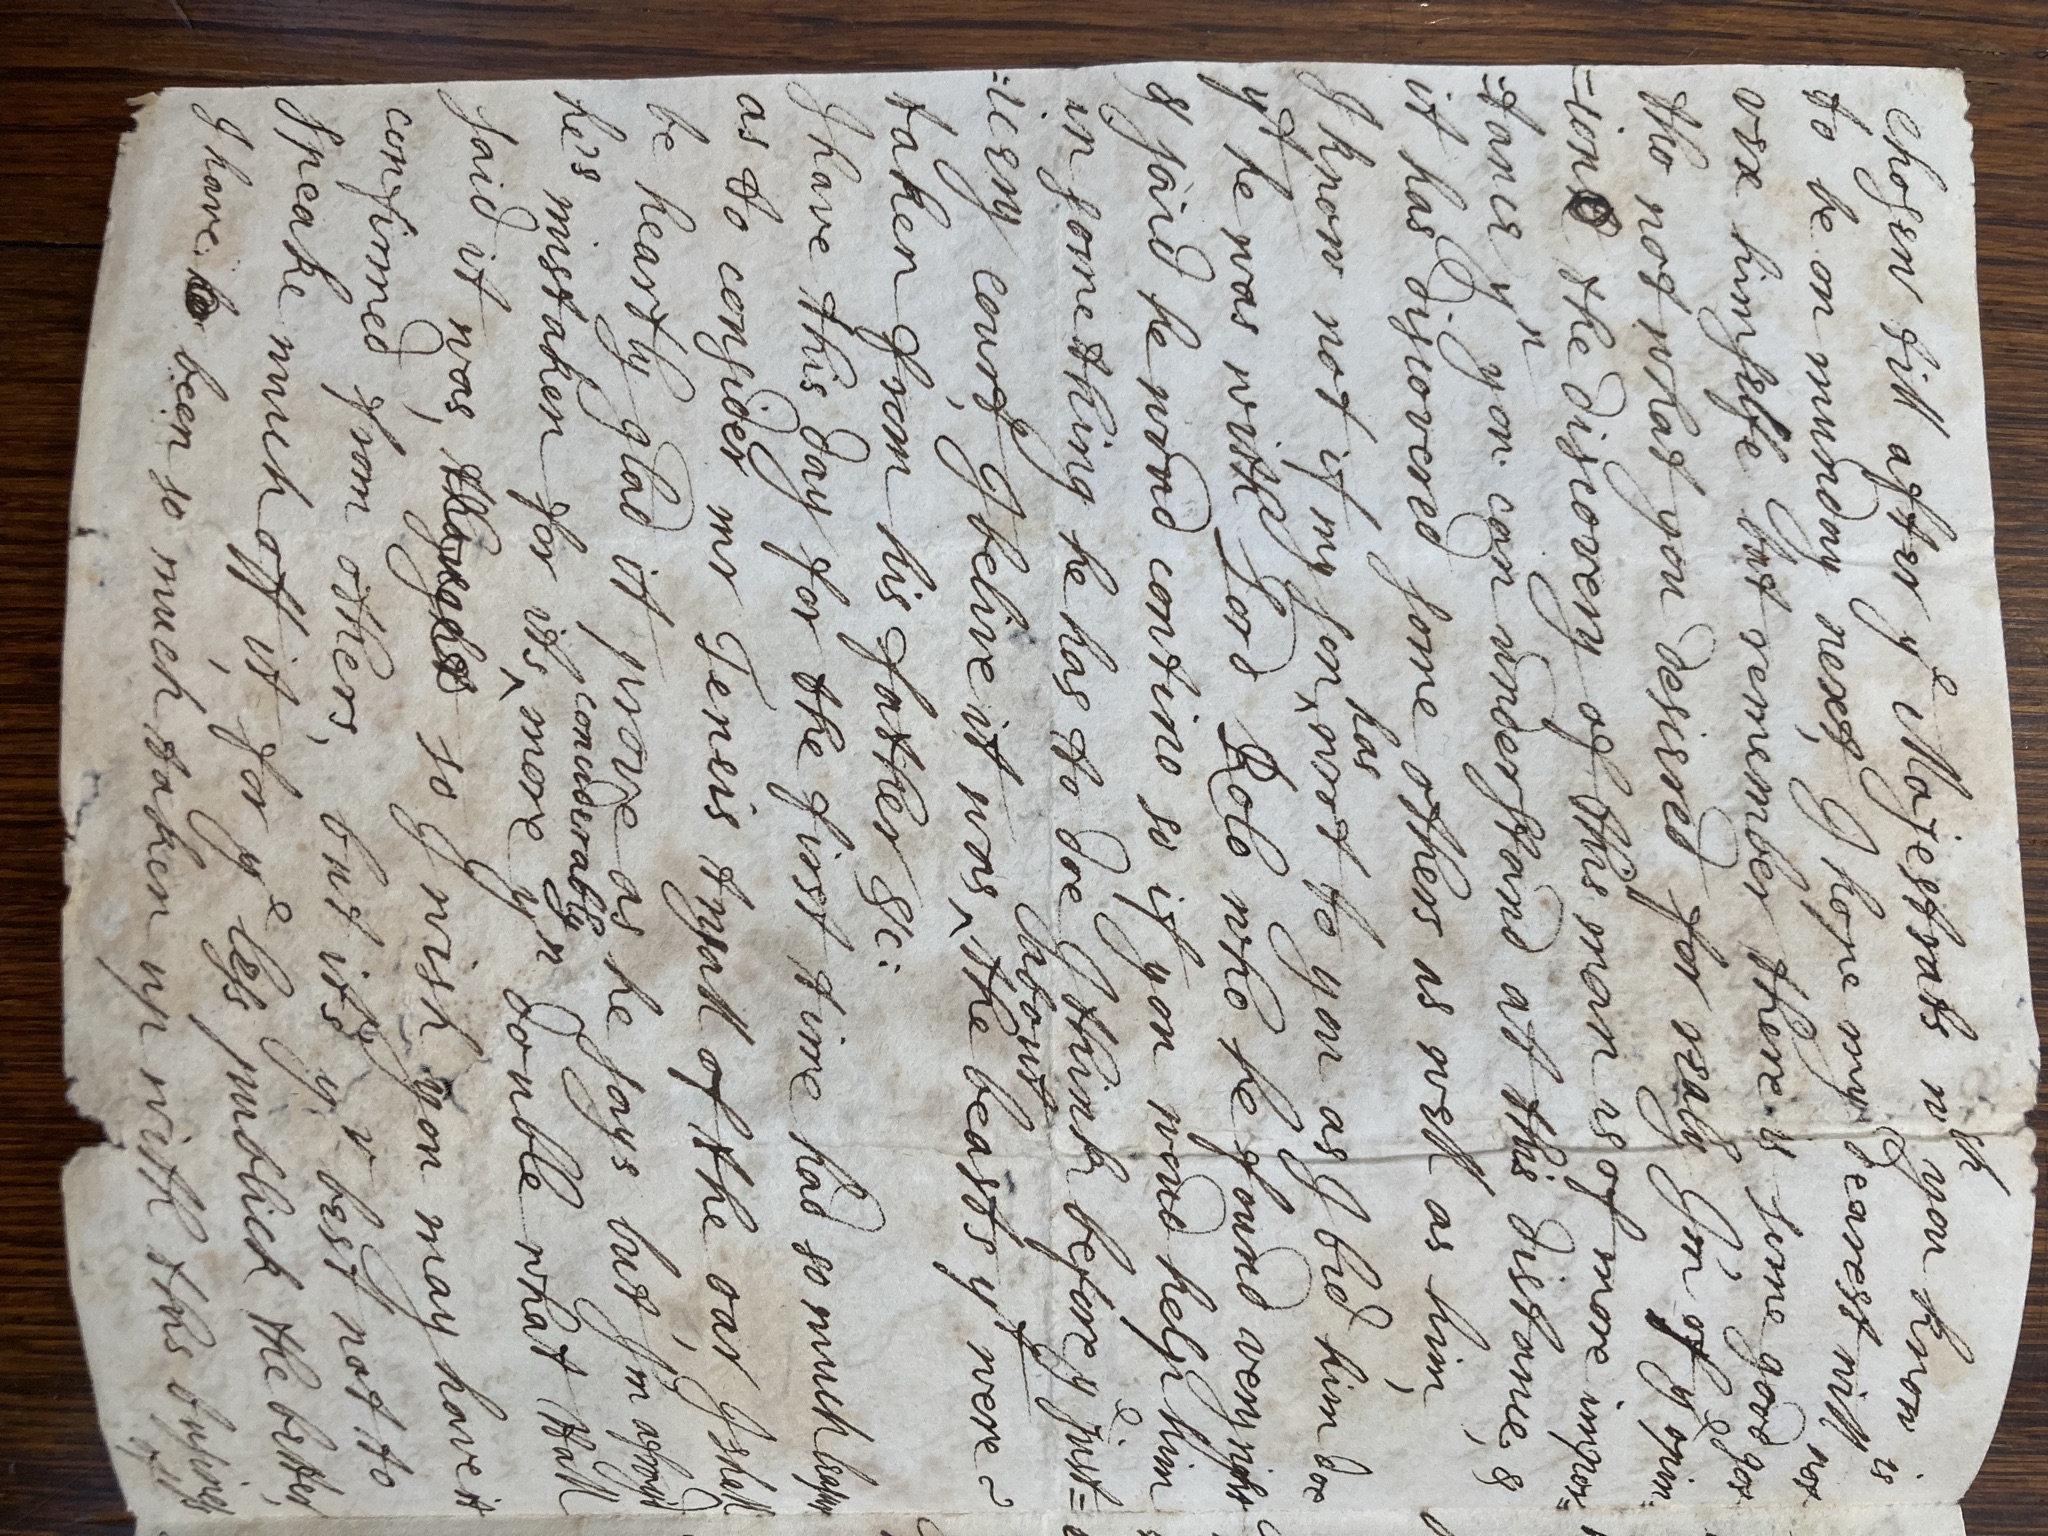 chosen till after yᵉ Majestrats wᶜʰ you know is
to be on munday next, I hope my dearest will not
vex himselfe but remember there is some good got
tho not what you desiered for realy I'm of yᵉ opin=
=ion the discovery of this man is of more impor=
=tance yⁿ you can understand at this distance, &
it has discovered some others as well as him,
I know not if my son ^has wrot to you as I bid him doe
yᵗ he was with Lord Rolo who he found very right
& said he woud contino so if you woud help him
in something he has to doe I think before yᵉ just=
=icery court, I belive it was ^about the beasts yᵗ were
taken from his father &c:
I have this day for the first time had so much leasur
as to consider mr Teneis tryall of the oar, I shall
be heartly glad it prove as he says but I'm afray'd
he's mistaken for its ^conciderably more yⁿ double what Hall
said it was, thought so I wish you may have it
confirmed from others, but it's yʳ best not to
speake much off it, for yᵉ less publick the better,
I have been so much taken up with this business
of